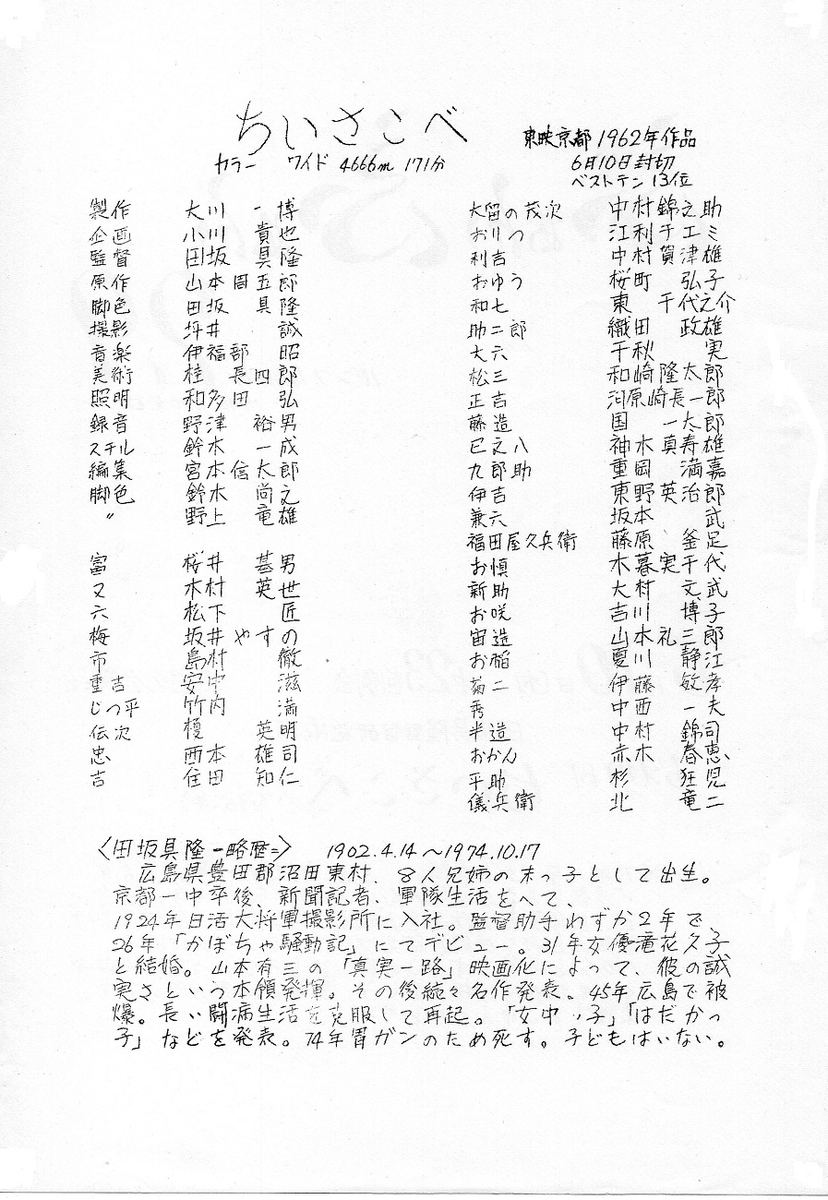 ちいさこべ
東映京都 1962年作品
カラー ワイド 4666m 171分
6月10日封切
ベストテン 13位
製作 大川一博
企画 小川貴也
監督 田坂具隆
原作 山本周五郎
脚色 田坂具隆
撮影 坪井誠
音楽 伊福部昭
美術 桂長四郎
照明 和多田弘
録音 野津裕男
スチル 鈴木一成
編集 宮本信太郎
脚色 鈴木尚之
〃 野上竜雄
富 桜井甚男
又 木村英世
六 松下匠
梅 坂井やすの
市 島村徹
重吉 安中滋
じつ平 竹内満
伝次 榎英明
忠 西本雄司
吉 住田知仁
大留の茂次 中村錦之助
おりつ 江利チエミ
利吉 中村賀津雄
おゆう 桜町弘子
和七 東千代之介
助二郎 織田政雄
大六 千秋実
松三 和崎隆太郎
正吉 河原崎長一郎
藤造 国一太郎
巳之八 神木真寿雄
九郎助 重岡満嘉
伊吉 東野英治郎
兼六 坂本武
福田屋久兵衛 藤原釜足
お慎 木暮実千代
新助 大村文武
お咲 吉川博子
宙造 山本礼三郎
お稲 夏川静江
菊二 伊藤敏孝
秀 中西一夫
半造 中村錦司
おかん 赤木春恵
平助 杉狂児
儀兵衛 北竜二
〈田坂具隆―略歴=〉 1902.4.14〜1974.10.17
広島県豊田郡沼田東村、8人兄姉の末っ子として出生。
京都一中卒後、新聞記者、軍隊生活をへて、
1924年日活大将軍撮影所に入社。監督助手わずか2年で、
26年「かぼちゃ騒動記」にてデビュー。31年女優滝花久子
と結婚。山本有三の「真実一路」映画化によって、彼の誠
実さという本領発揮。その後続々名作発表。45年広島で被
爆。長い闘病生活を克服して再起。「女中ッ子」「はだかっ
子」などを発表。74年胃ガンのため死す。子どもはいない。